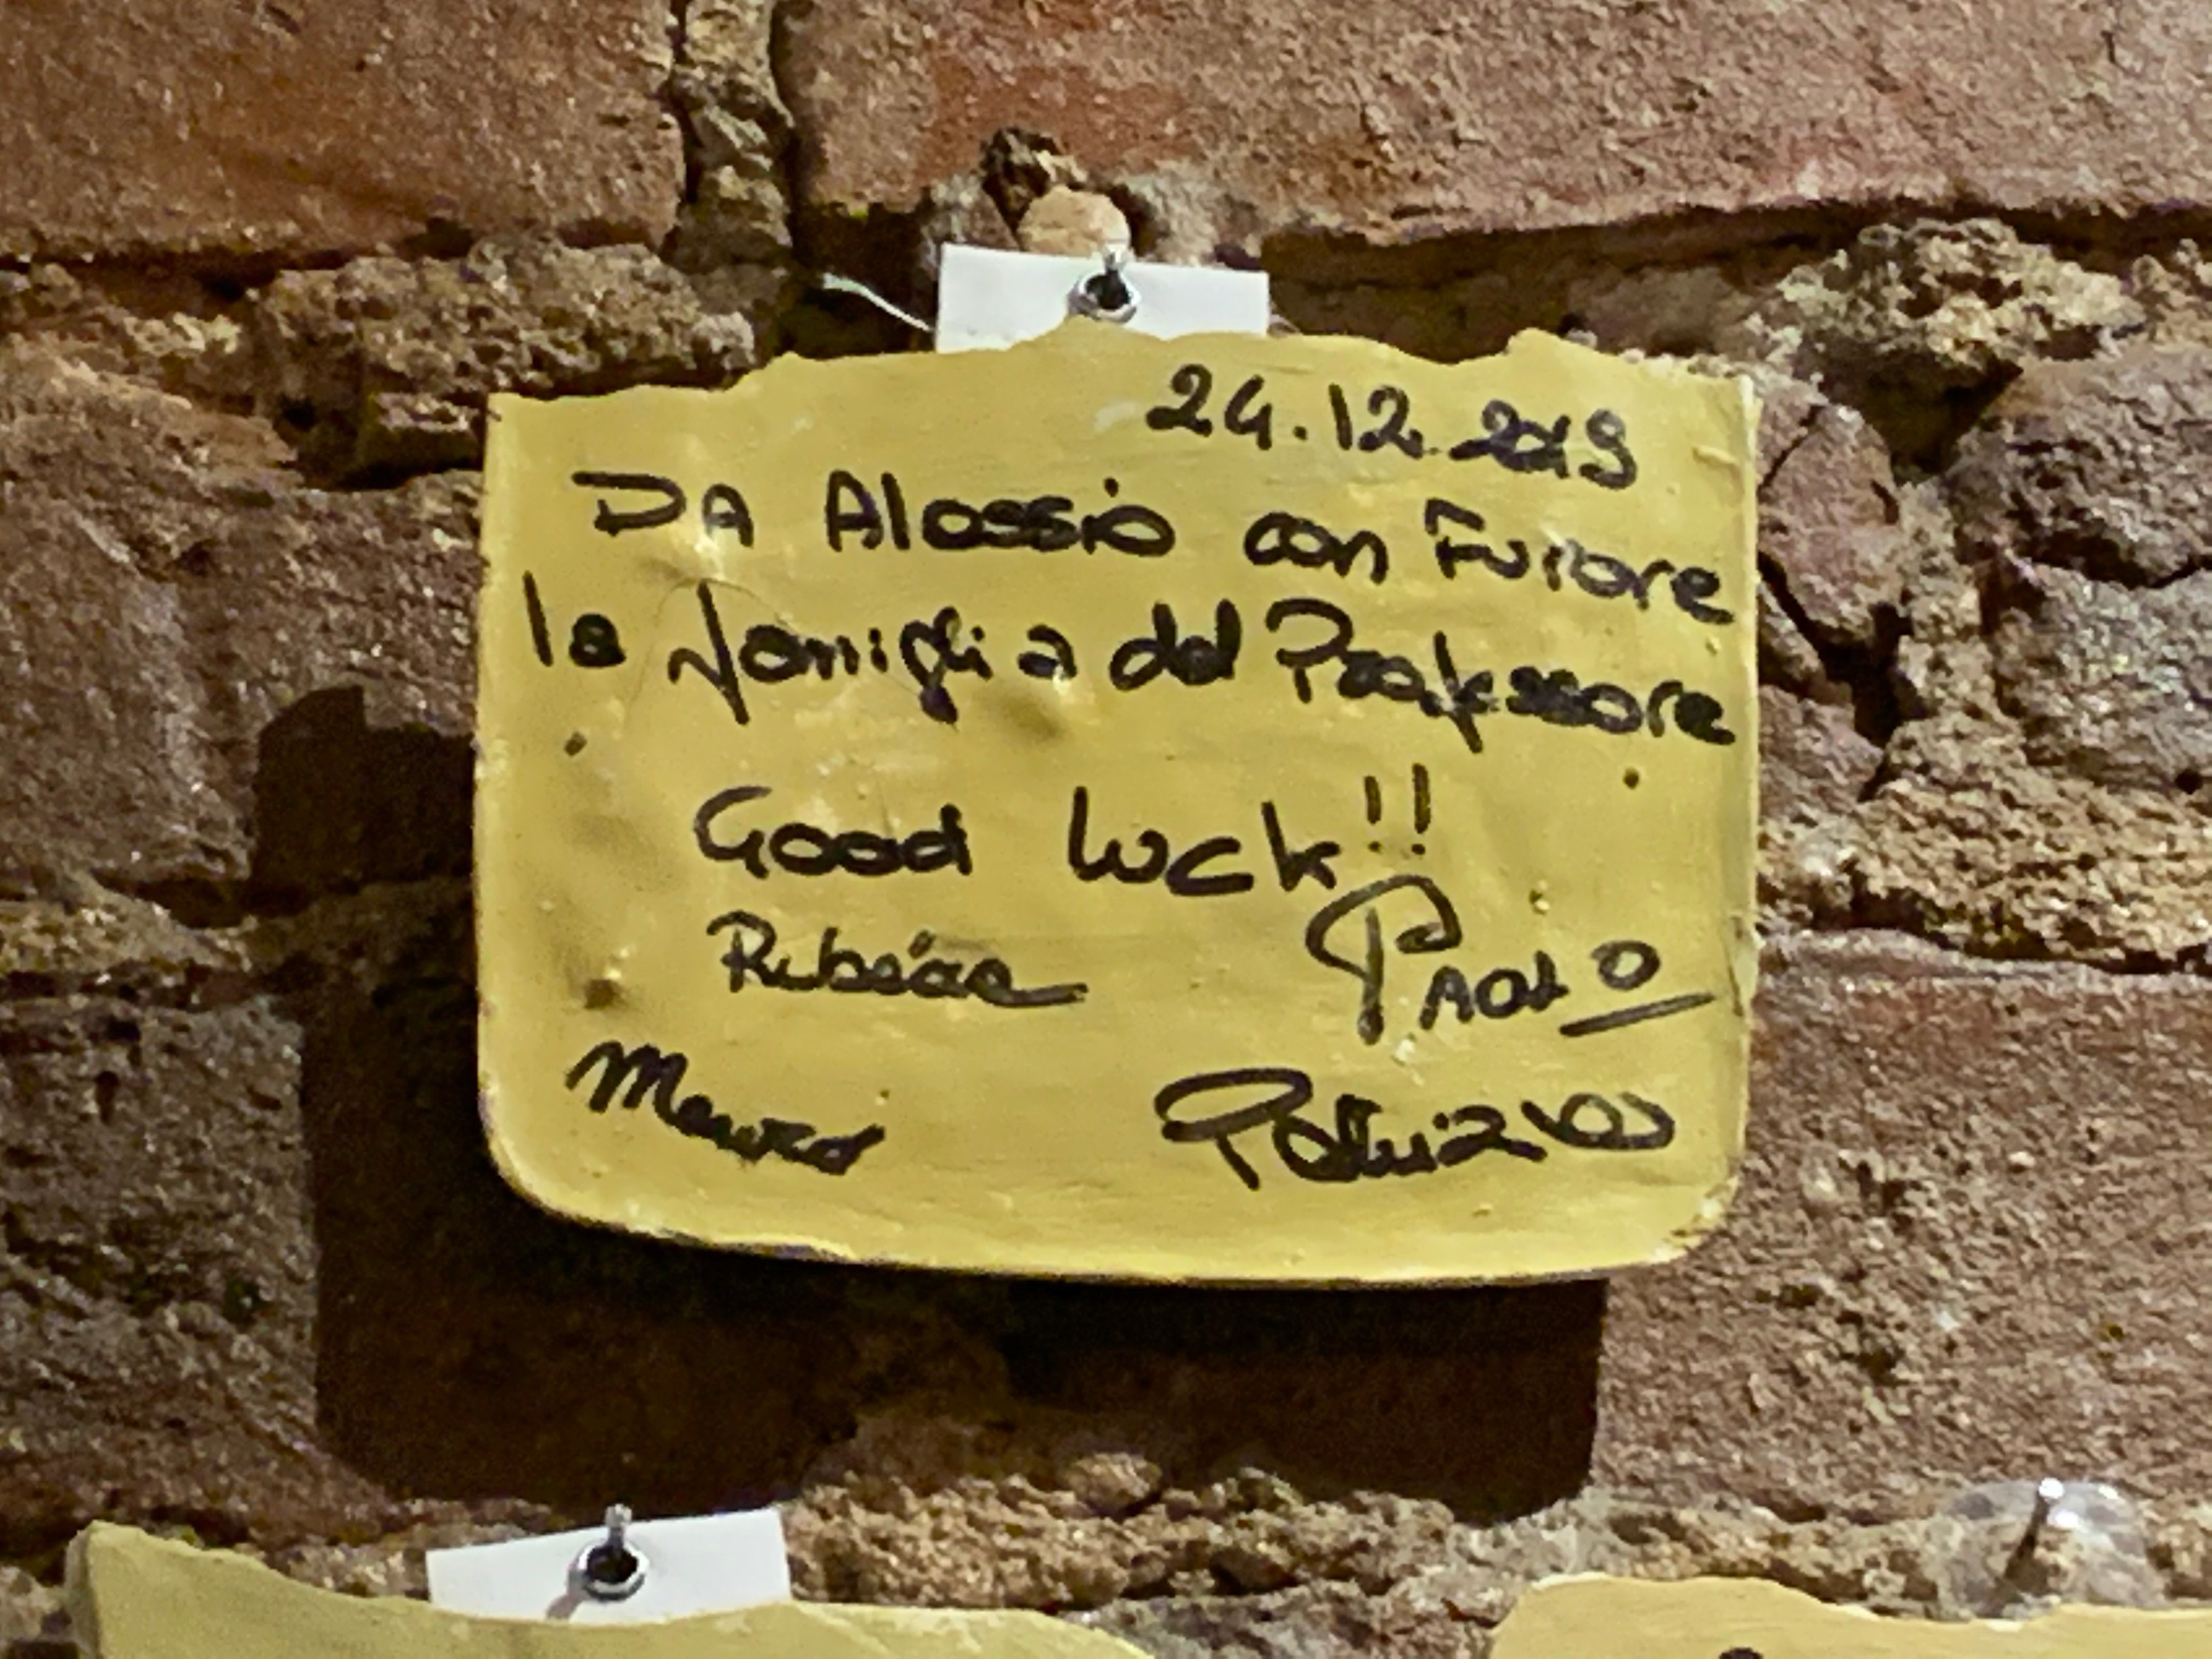 24.12.2019
DA Alassio con Furore
la famiglia del Professore
Good Luck!!
PAOLO
Mauro